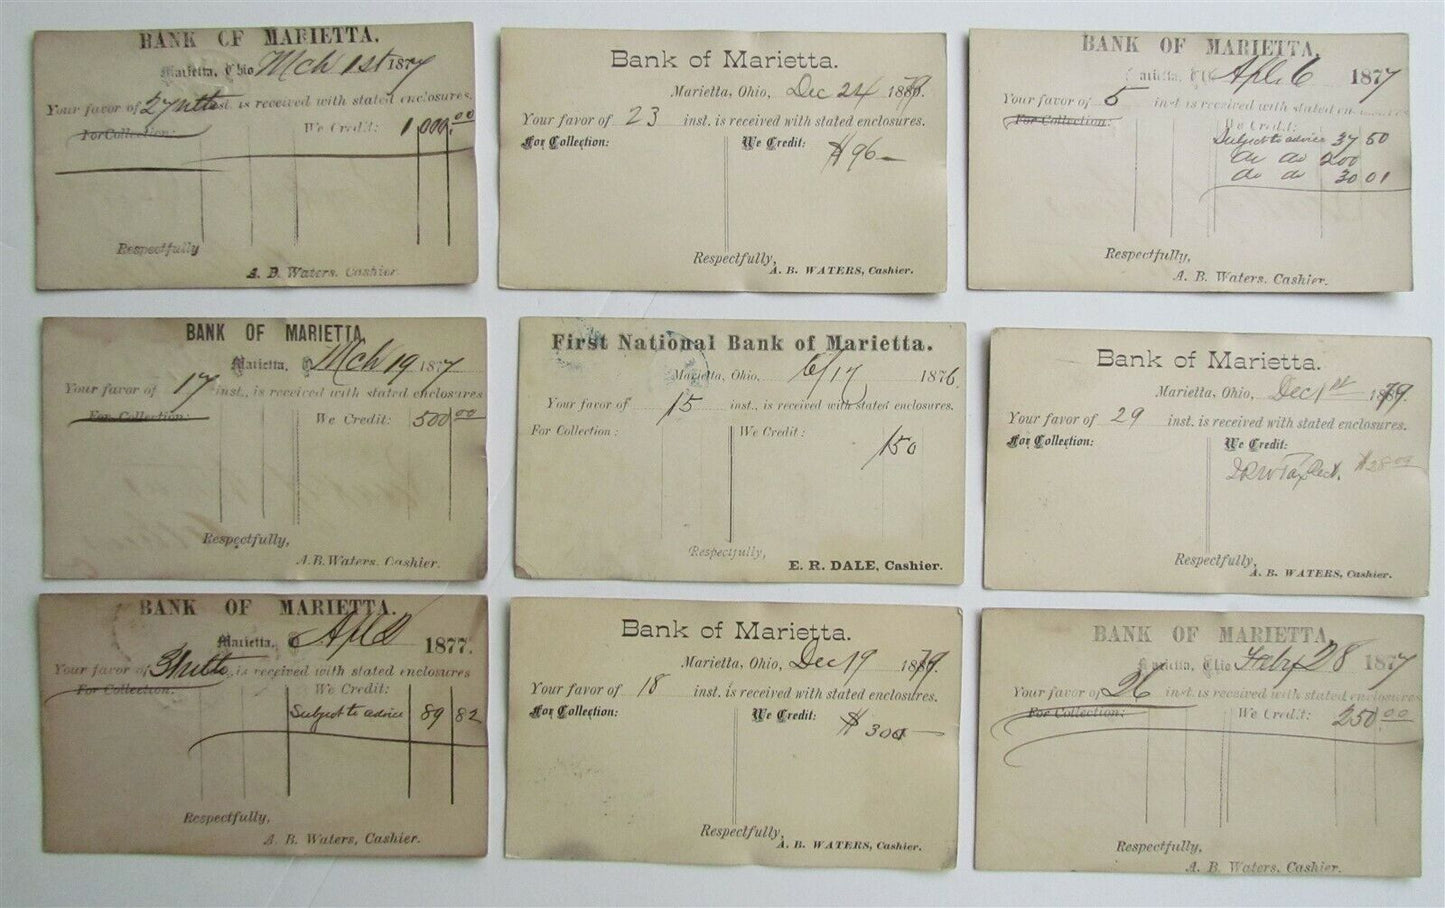 BANK OF MARIETTA.
Marietta, Ohio Mch 1st 1877
Your favor of 27 ulto st. is received with stated enclosures.
For Collection: We Credit: 1 000.00
Respectfully
A. B. Waters. Cashier
Bank of Marietta.
Marietta, Ohio, Dec 24 1879.
Your favor of 23 inst. is received with stated enclosures.
For Collection: We Credit:
$96—
Respectfully,
A. B. WATERS, Cashier.
BANK OF MARIETTA,
Marietta, O Apl. 6 1877
Your favor of 5 inst is received with stated enclosures
For Collection: We Credit:
Subject to advice 37 50
do do 200
do do 30 01
Respectfully,
A. B. Waters. Cashier.
BANK OF MARIETTA,
Marietta, O Mch 19 1877
Your favor of 17 inst., is received with stated enclosures
For Collection: We Credit: 500 00
Respectfully,
A. B. Waters. Cashier.
First National Bank of Marietta.
Marietta, Ohio, 6/17 1876.
Your favor of 15 inst., is received with stated enclosures.
For Collection: We Credit:
150
Respectfully,
E. R. DALE, Cashier.
Bank of Marietta.
Marietta, Ohio, Dec 1st 1879.
Your favor of 29 inst. is received with stated enclosures.
For Collection: We Credit:
$28 00
Respectfully,
A. B. WATERS, Cashier.
BANK OF MARIETTA.
Marietta, O Apl 1877.
Your favor of ulto is received with stated enclosures
For Collection: We Credit:
Subject to advice 89 82
Respectfully,
A. B. Waters, Cashier.
Bank of Marietta.
Marietta, Ohio, Dec 19 1879.
Your favor of 18 inst. is received with stated enclosures.
For Collection: We Credit:
$ 300—
Respectfully,
A. B. WATERS, Cashier.
BANK OF MARIETTA,
Marietta, Ohio Feby 28 1877
Your favor of 26 inst. is received with stated enclosures
For Collection: We Credit: 250.00
Respectfully,
A. B. Waters, Cashier.